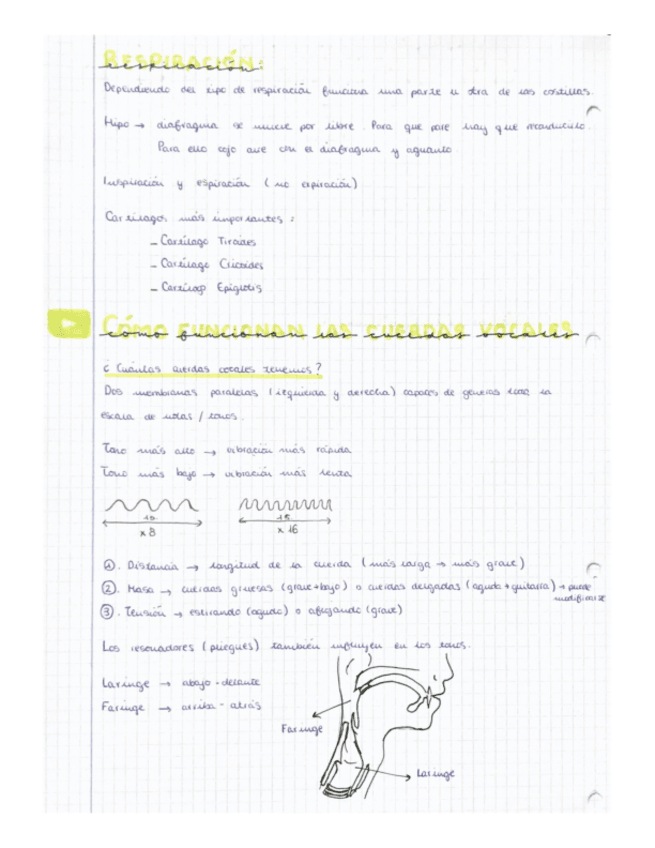 RESPIRACIÓN:
Dependiendo del tipo de respiración funciona una parte u otra de las costillas.
Hipo → diafragma se mueve por libre. Para que pare hay que reconducirlo.
Para ello cojo aire con el diafragma y aguanto.
Inspiración y espiración (no expiración)
Cartílagos más importantes:
- Cartílago Tiroides
- Cartílago Cricoides
- Cartílago Epiglotis
CÓMO FUNCIONAN LAS CUERDAS VOCALES
¿Cuántas cuerdas vocales tenemos?
Dos membranas paralelas (izquierda y derecha) capaces de generar toda la
escala de notas / tonos.
Tono más alto → vibración más rápida
Tono más bajo → vibración más lenta
1s. 1s.
x 8 x 16
①. Distancia → longitud de la cuerda (más larga → más grave)
②. Masa → cuerdas gruesas (grave+bajo) o cuerdas delgadas (agudo+guitarra) → puede
modificarse
③. Tensión → estirando (agudo) o aflojando (grave)
Los resonadores (pliegues) también influyen en los tonos.
Laringe → abajo - delante
Faringe → arriba - atrás
Faringe
Laringe